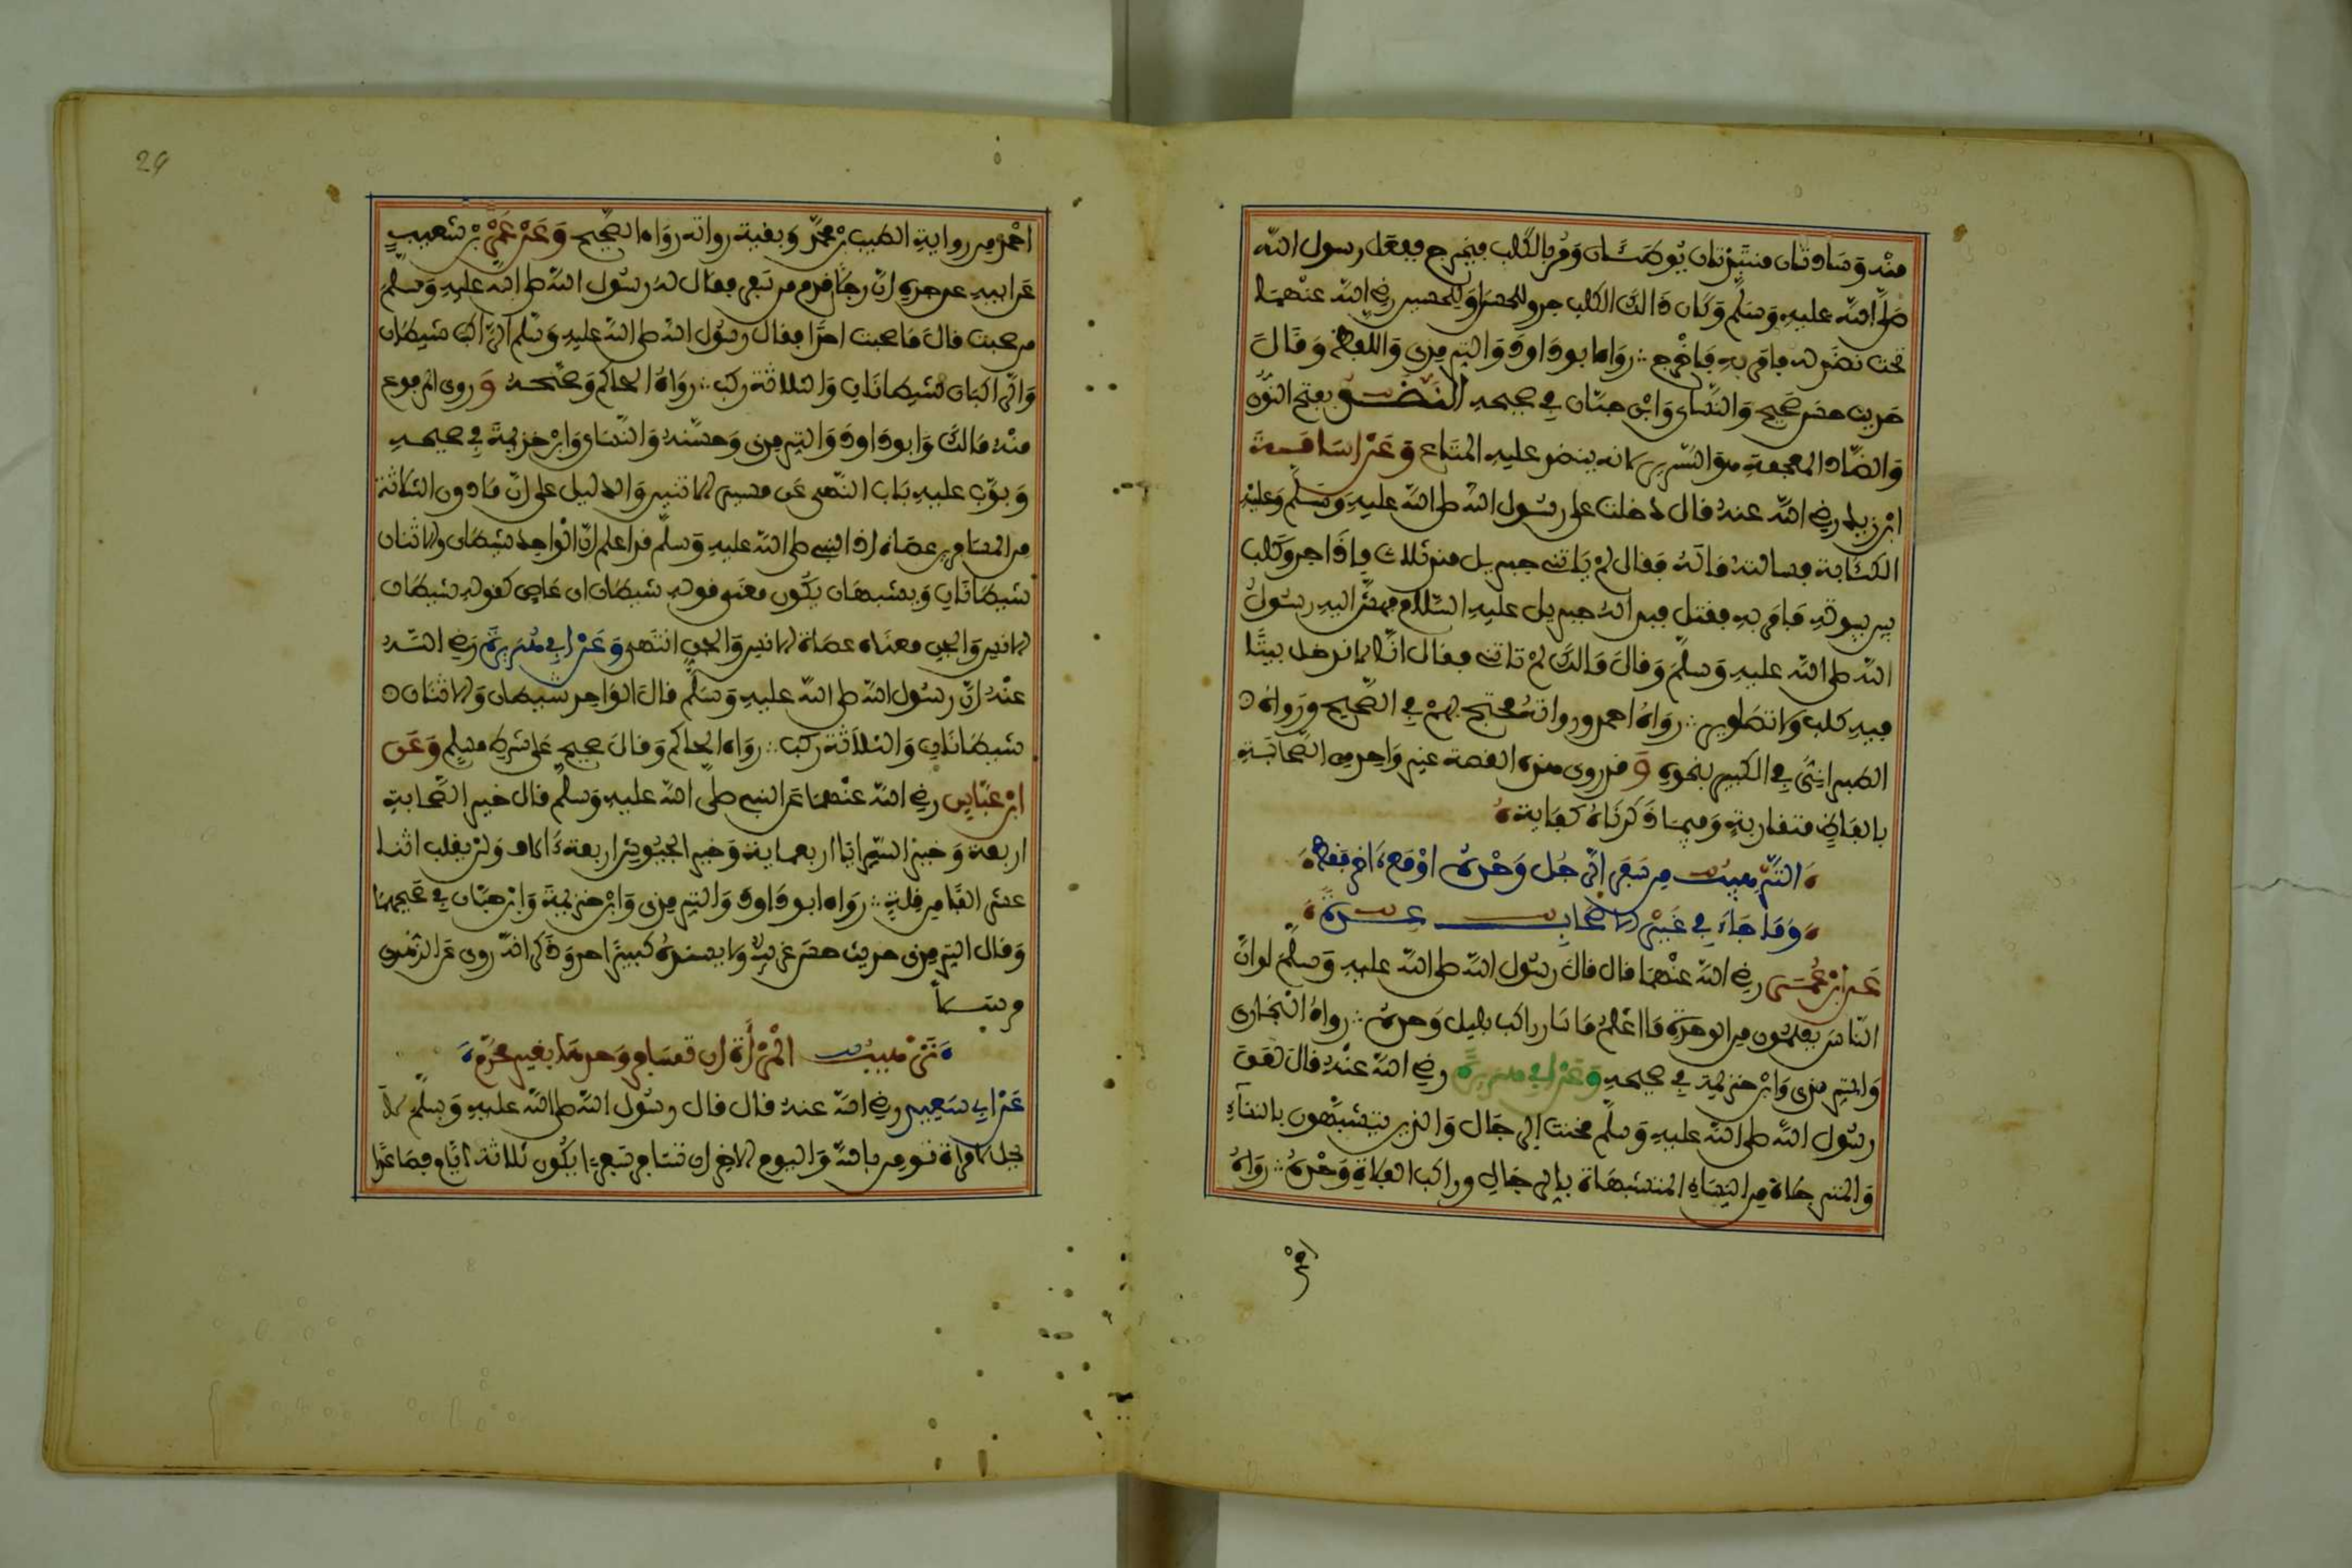 منه وسادتان منتبذتان يوطئان ومر بالكلب فيخرج ففعل رسول الله
صلى الله عليه وسلم وكان ذالك الكلب جرو للحسن او للحسين رضي الله عنهما
تحت نضد له فامر به فاخرج ∴ رواه ابو داود والترمذي واللفظ له وقال
حديث حسن صحيح والنسائ وابن حبان في صحيحه النضد بفتح النون
والضاد المعجمة هو السرير لانه ينضد عليه المتاع وعن اسامة
ابن زيد رضي الله عنه قال دخلت على رسول الله صلى الله عليه وسلم وعليه
الكئابة فسالته ماله فقال لم ياتني جبريل منذ ثلاث فاذا جرو كلب
بين بيوته فامر به فقتل فبدا له جبريل عليه السلام فهش اليه رسول
الله صلى الله عليه وسلم وقال مالك لم تاتني فقال انا لا ندخل بيتا
فيه كلب ولا تصاوير ∴ رواه احمد ورواته محتج بهم في الصحيح ورواه
الطبراني في الكبير بنحوه وقد روى هذه القصة غير واحد من الصحابة
بالفاظ متقاربة وفيما ذكرناه كفاية
الترهيب من سفر الرجل وحده او مع ءاخر فقط
وما جاء في خير الاصحاب عدة
عن ابن عمر رضي الله عنهما قال قال رسول الله صلى الله عليه وسلم لو ان
الناس يعلمون من الوحدة ما اعلم ما سار راكب بليل وحده ∴ رواه البخاري
والترمذي وابن خزيمة في صحيحه وعن ابي هريرة رضي الله عنه قال لعن
رسول الله صلى الله عليه وسلم مخنث الرجال والذين يتشبهون بالنساء
والمترجلات من النساء المتشبهات بالرجال وراكب الفلاة وحده ∴ رواه
احمد
احمد من رواية الطيب بن محمد وبقية رواته رواة الصحيح وعن عمر بن شعيب
عن ابيه عن جده ان رجلا قدم من سفر فقال له رسول الله صلى الله عليه وسلم
من صحبت قال ما صحبت احدا فقال رسول الله صلى الله عليه وسلم الراكب شيطان
والراكبان شيطانان والثلاثة ركب ∴ رواه الحاكم وصححه وروى المرفوع
منه مالك وابو داود والترمذي وحسنه والنسائ وابن خزيمة في صحيحه
وبوب عليه باب النهي عن مسير الاثنين والدليل على ان ما دون الثلاثة
من المسافرين عصاة اذ النبي صلى الله عليه وسلم قد اعلم ان الواحد شيطان والاثنان
شيطانان ويشبه ان يكون معنى قوله شيطان اي عاص كقوله شيطان
الانس والجن معناه عصاة الانس والجن انتهى وعن ابي هريرة رضي الله
عنه ان رسول الله صلى الله عليه وسلم قال الواحد شيطان والاثنان
شيطانان والثلاثة ركب ∴ رواه الحاكم وقال صحيح على شرط مسلم وعن
ابن عباس رضي الله عنهما عن النبي صلى الله عليه وسلم قال خير الصحابة
اربعة وخير السرايا اربعماية وخير الجيوش اربعة ءالاف ولن يغلب اثنا
عشر الفا من قلة ∴ رواه ابو داود والترمذي وابن خزيمة وابن حبان في صحيحهما
وقال الترمذي حديث حسن غريب ولا يسنده كبير احد وذكر انه روى عن الزهري
مرسلا
ترهيب المراة ان تسافر وحدها بغير محرم
عن ابي سعيد رضي الله عنه قال قال رسول الله صلى الله عليه وسلم لا
يحل لامراة تومن بالله واليوم الاخر ان تسافر سفرا يكون ثلاثة ايام فصاعدا
29